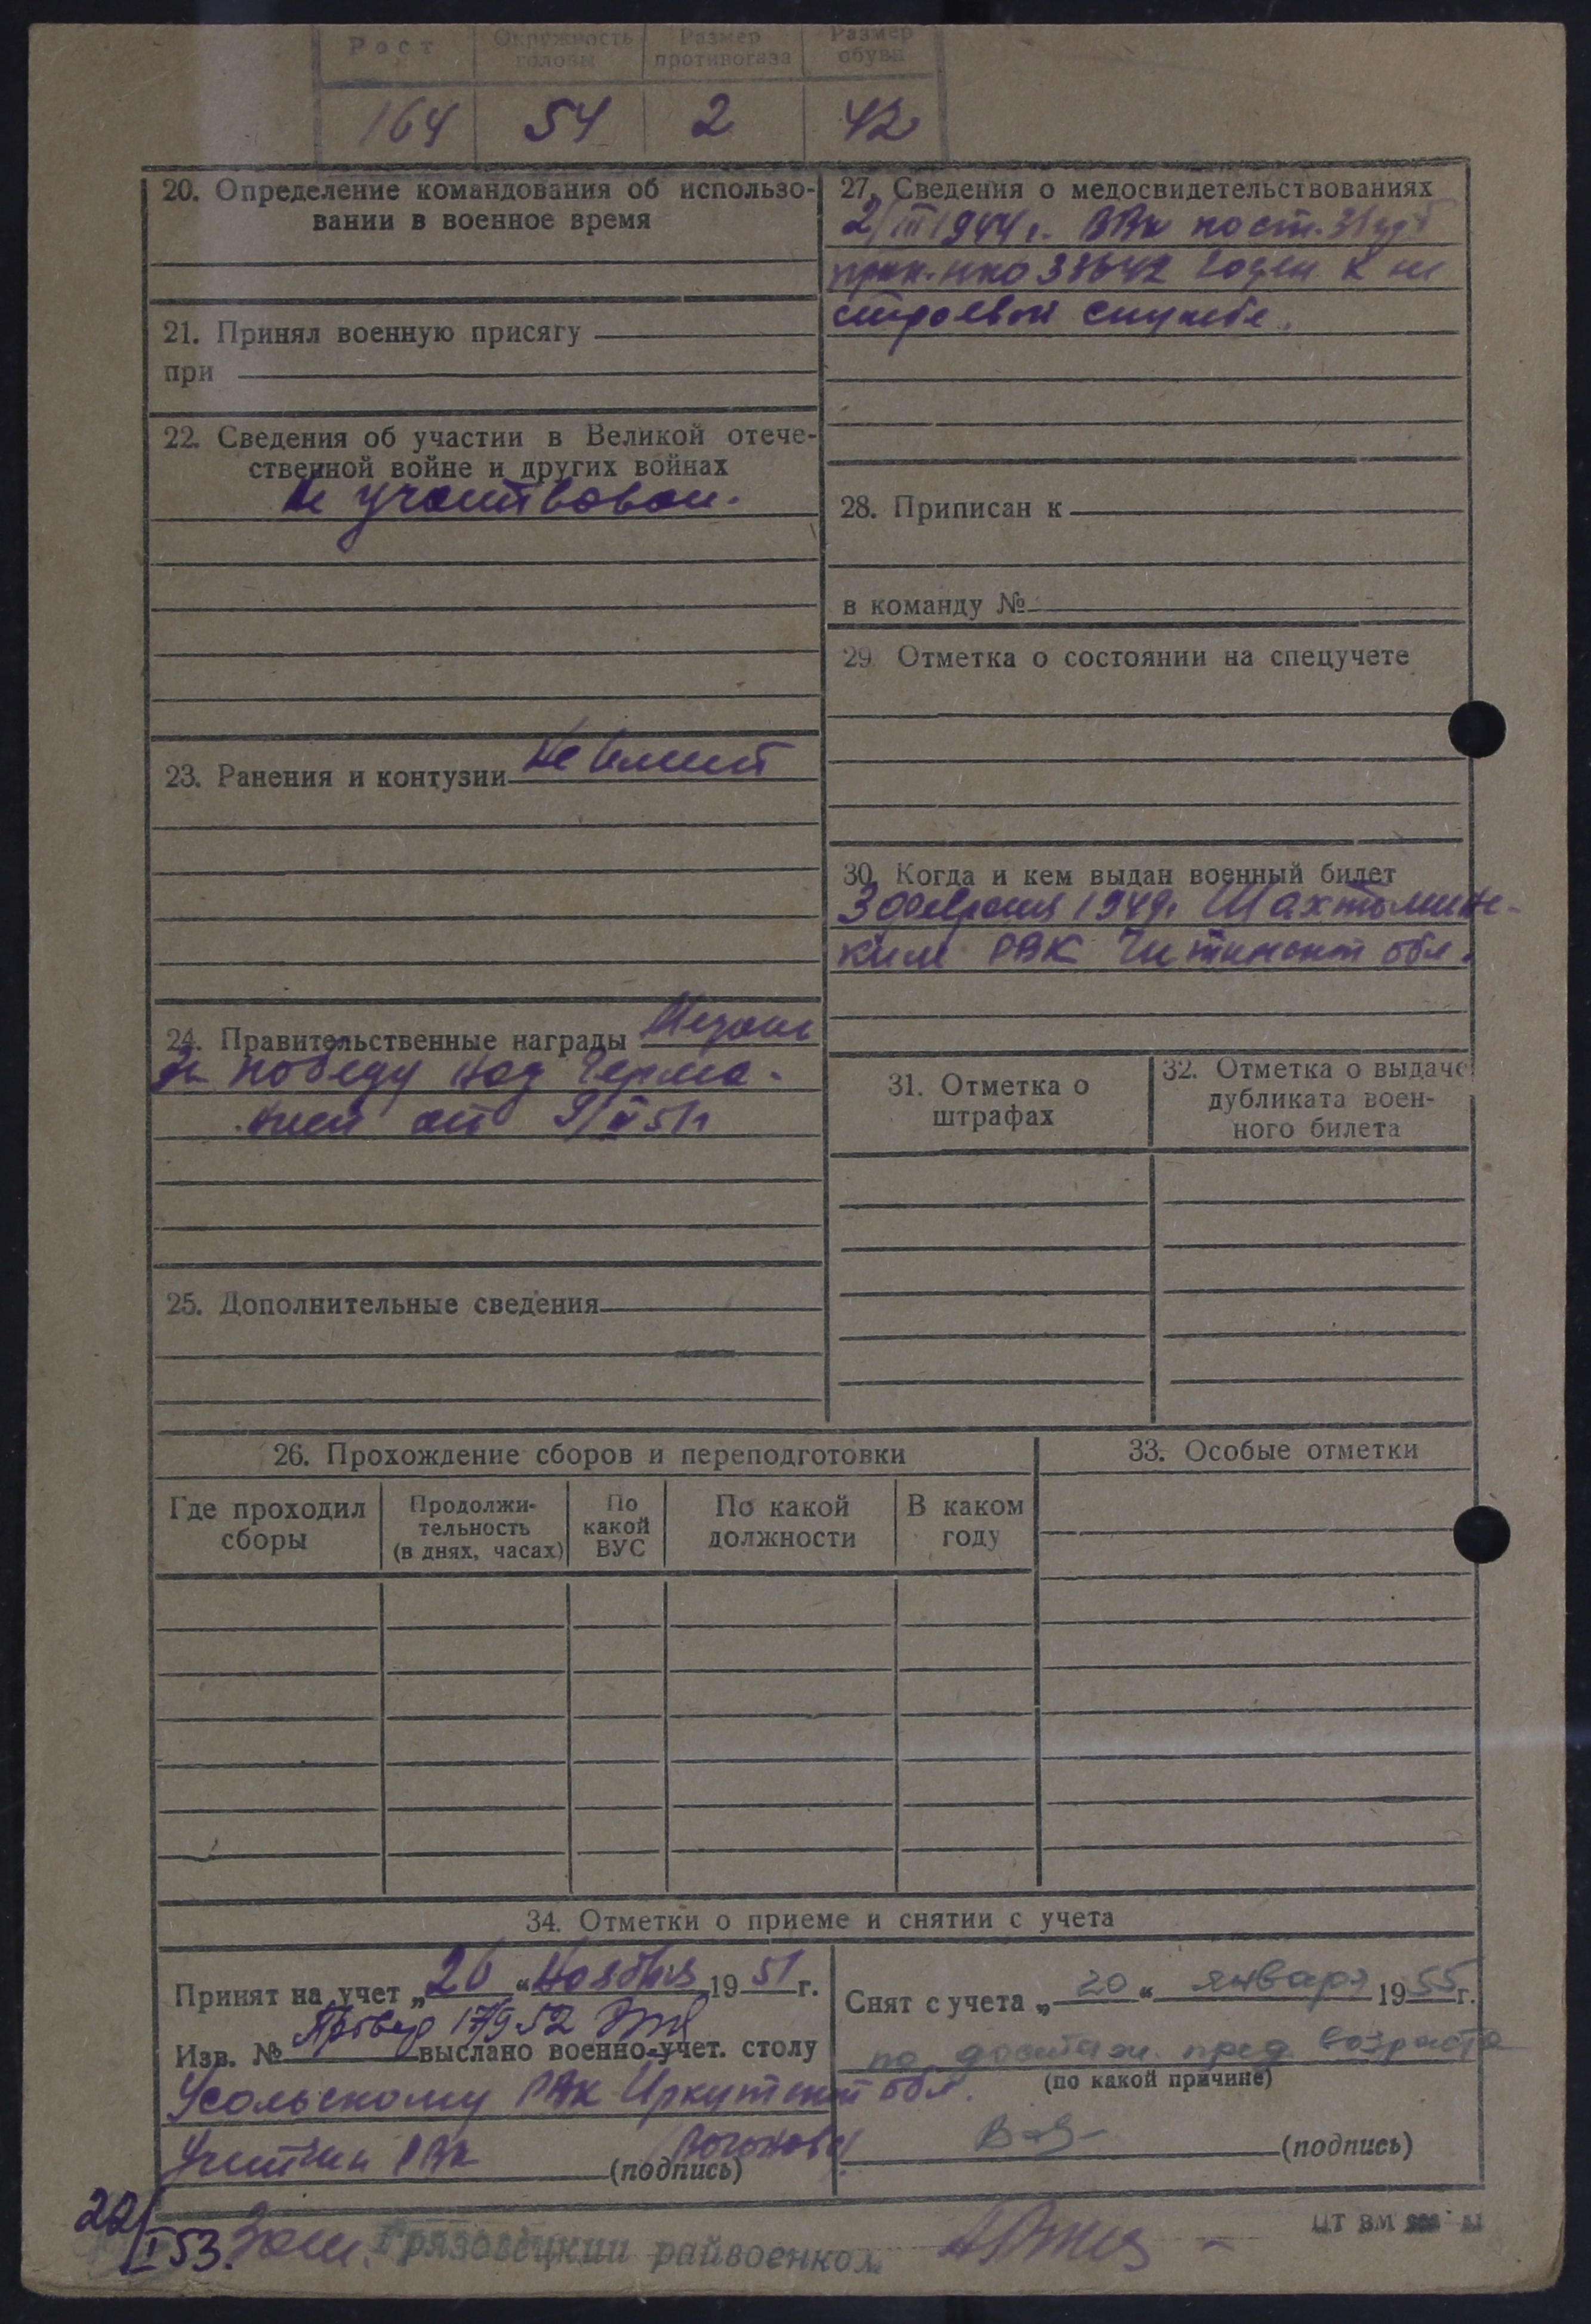 Рост Окружность головы Размер противогаза Размер обуви
164 54 2 42
20. Определение командования об использо-
вании в военное время
21. Принял военную присягу
при
22. Сведения об участии в Великой отече-
ственной войне и других войнах
Не участвовал.
23. Ранения и контузии Не имеет
24. Правительственные награды Медаль
За победу над Герма-
нией от 9/V 51г
25. Дополнительные сведения
27. Сведения о медосвидетельствованиях
2/III 1944 г. ВВК по ст. 31
прик. НКО 336 42 годен к не
строевой службе.
28. Приписан к
в команду №
29. Отметка о состоянии на спецучете
30. Когда и кем выдан военный билет
3 февраля 1949г. Шахтаминс-
ким РВК Читинской обл.
31. Отметка о
штрафах
32. Отметка о выдаче
дубликата воен-
ного билета
26. Прохождение сборов и переподготовки
Где проходил сборы Продолжи-тельность (в днях, часах) По какой ВУС По какой должности В каком году
33. Особые отметки
34. Отметки о приеме и снятии с учета
Принят на учет „26 “ ноября 1951 г.
Провер 17/9 52
Изв. № выслано военно-учет. столу
Усольскому РВК Иркутской обл.
РВК
(подпись)
Снят с учета „20 “ января 1955 г.
по достиж. пред. возраста
(по какой причине)
(подпись)
22/I 53. Зам. Грязовецкий райвоенком
ЦТ ВМ